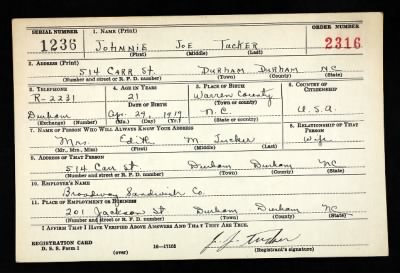 SERIAL NUMBER 1. NAME (Print) ORDER NUMBER
1236 JOHNNIE JOE TUCKER 2316
(First) (Middle) (Last)
2. ADDRESS (Print)
514 CARR St DURHAM DURHAM NC
(Number and street or R. F. D. number) (Town) (County) (State)
3. TELEPHONE 4. AGE IN YEARS 5. PLACE OF BIRTH 6. COUNTRY OF CITIZENSHIP
R-2231 21 Warren County
DATE OF BIRTH (Town or county)
Durham Apr. 29, 1919 N.C. U.S.A.
(Exchange) (Number) (Mo.) (Day) (Yr.) (State or country)
7. NAME OF PERSON WHO WILL ALWAYS KNOW YOUR ADDRESS 8. RELATIONSHIP OF THAT PERSON
Mrs. Edith M Tucker Wife
(Mr., Mrs., Miss) (First) (Middle) (Last)
9. ADDRESS OF THAT PERSON
514 Carr St Durham Durham NC
(Number and street or R. F. D. number) (Town) (County) (State)
10. EMPLOYER'S NAME
Broadway Sandwich Co.
11. PLACE OF EMPLOYMENT OR BUSINESS
201 Jackson St Durham Durham NC
(Number and street or R. F. D. number) (Town) (County) (State)
I AFFIRM THAT I HAVE VERIFIED ABOVE ANSWERS AND THAT THEY ARE TRUE.
J. J. Tucker
REGISTRATION CARD
D. S. S. Form 1 (over) 16-17105 (Registrant's signature)